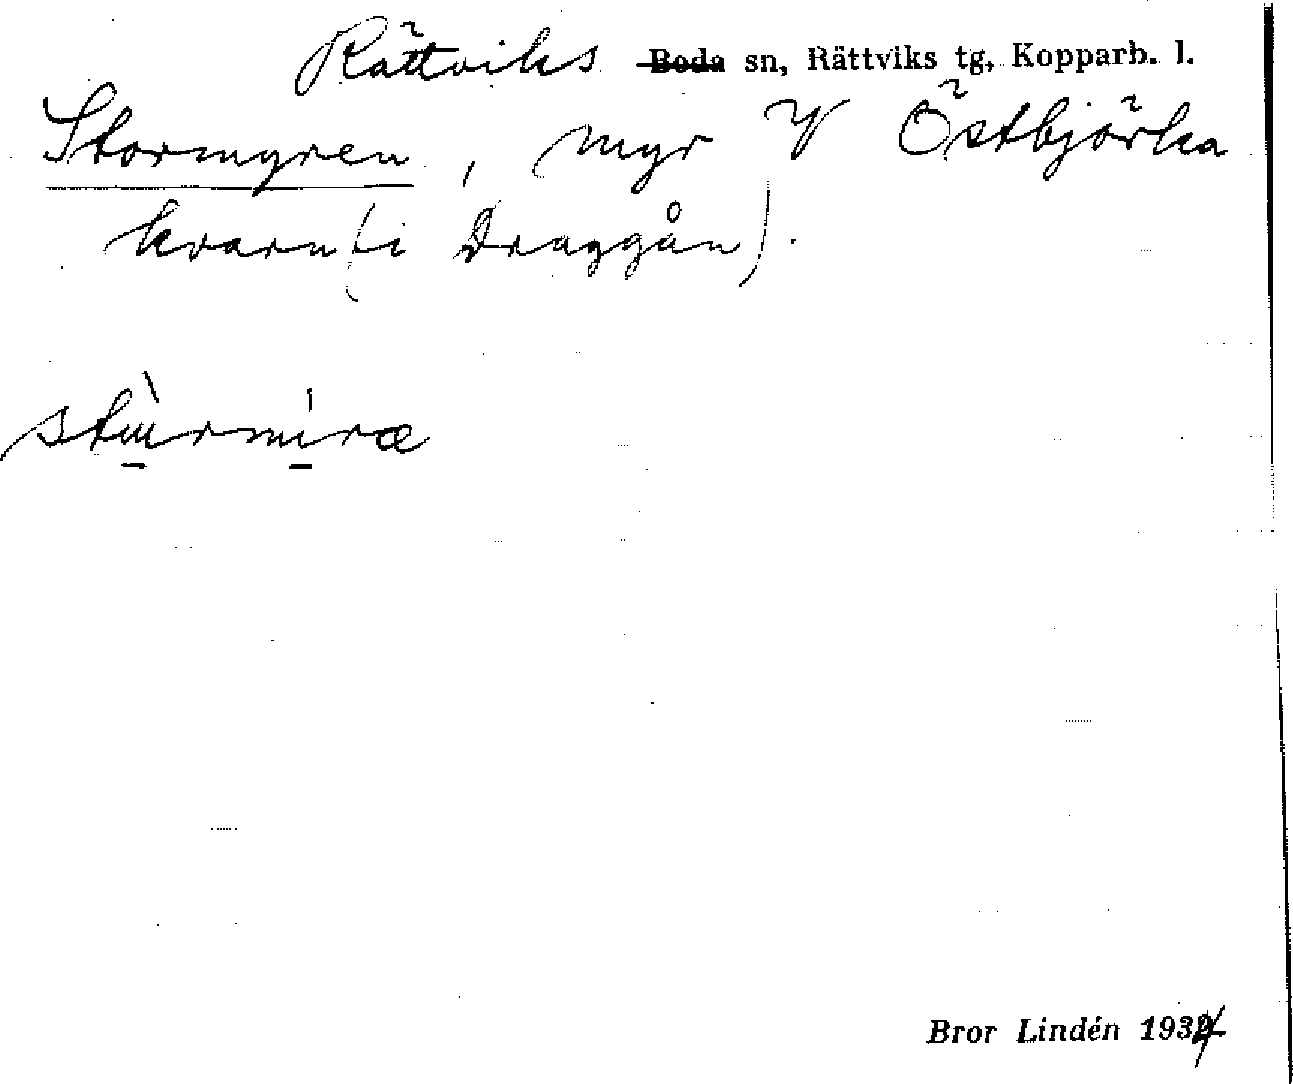 Rättviks Boda sn, Rättviks tg, Kopparb. l.
Stormyren, myr V Östbjörka
kvarn (i Draggån).
stùrmíræ
Bror Lindén 1934